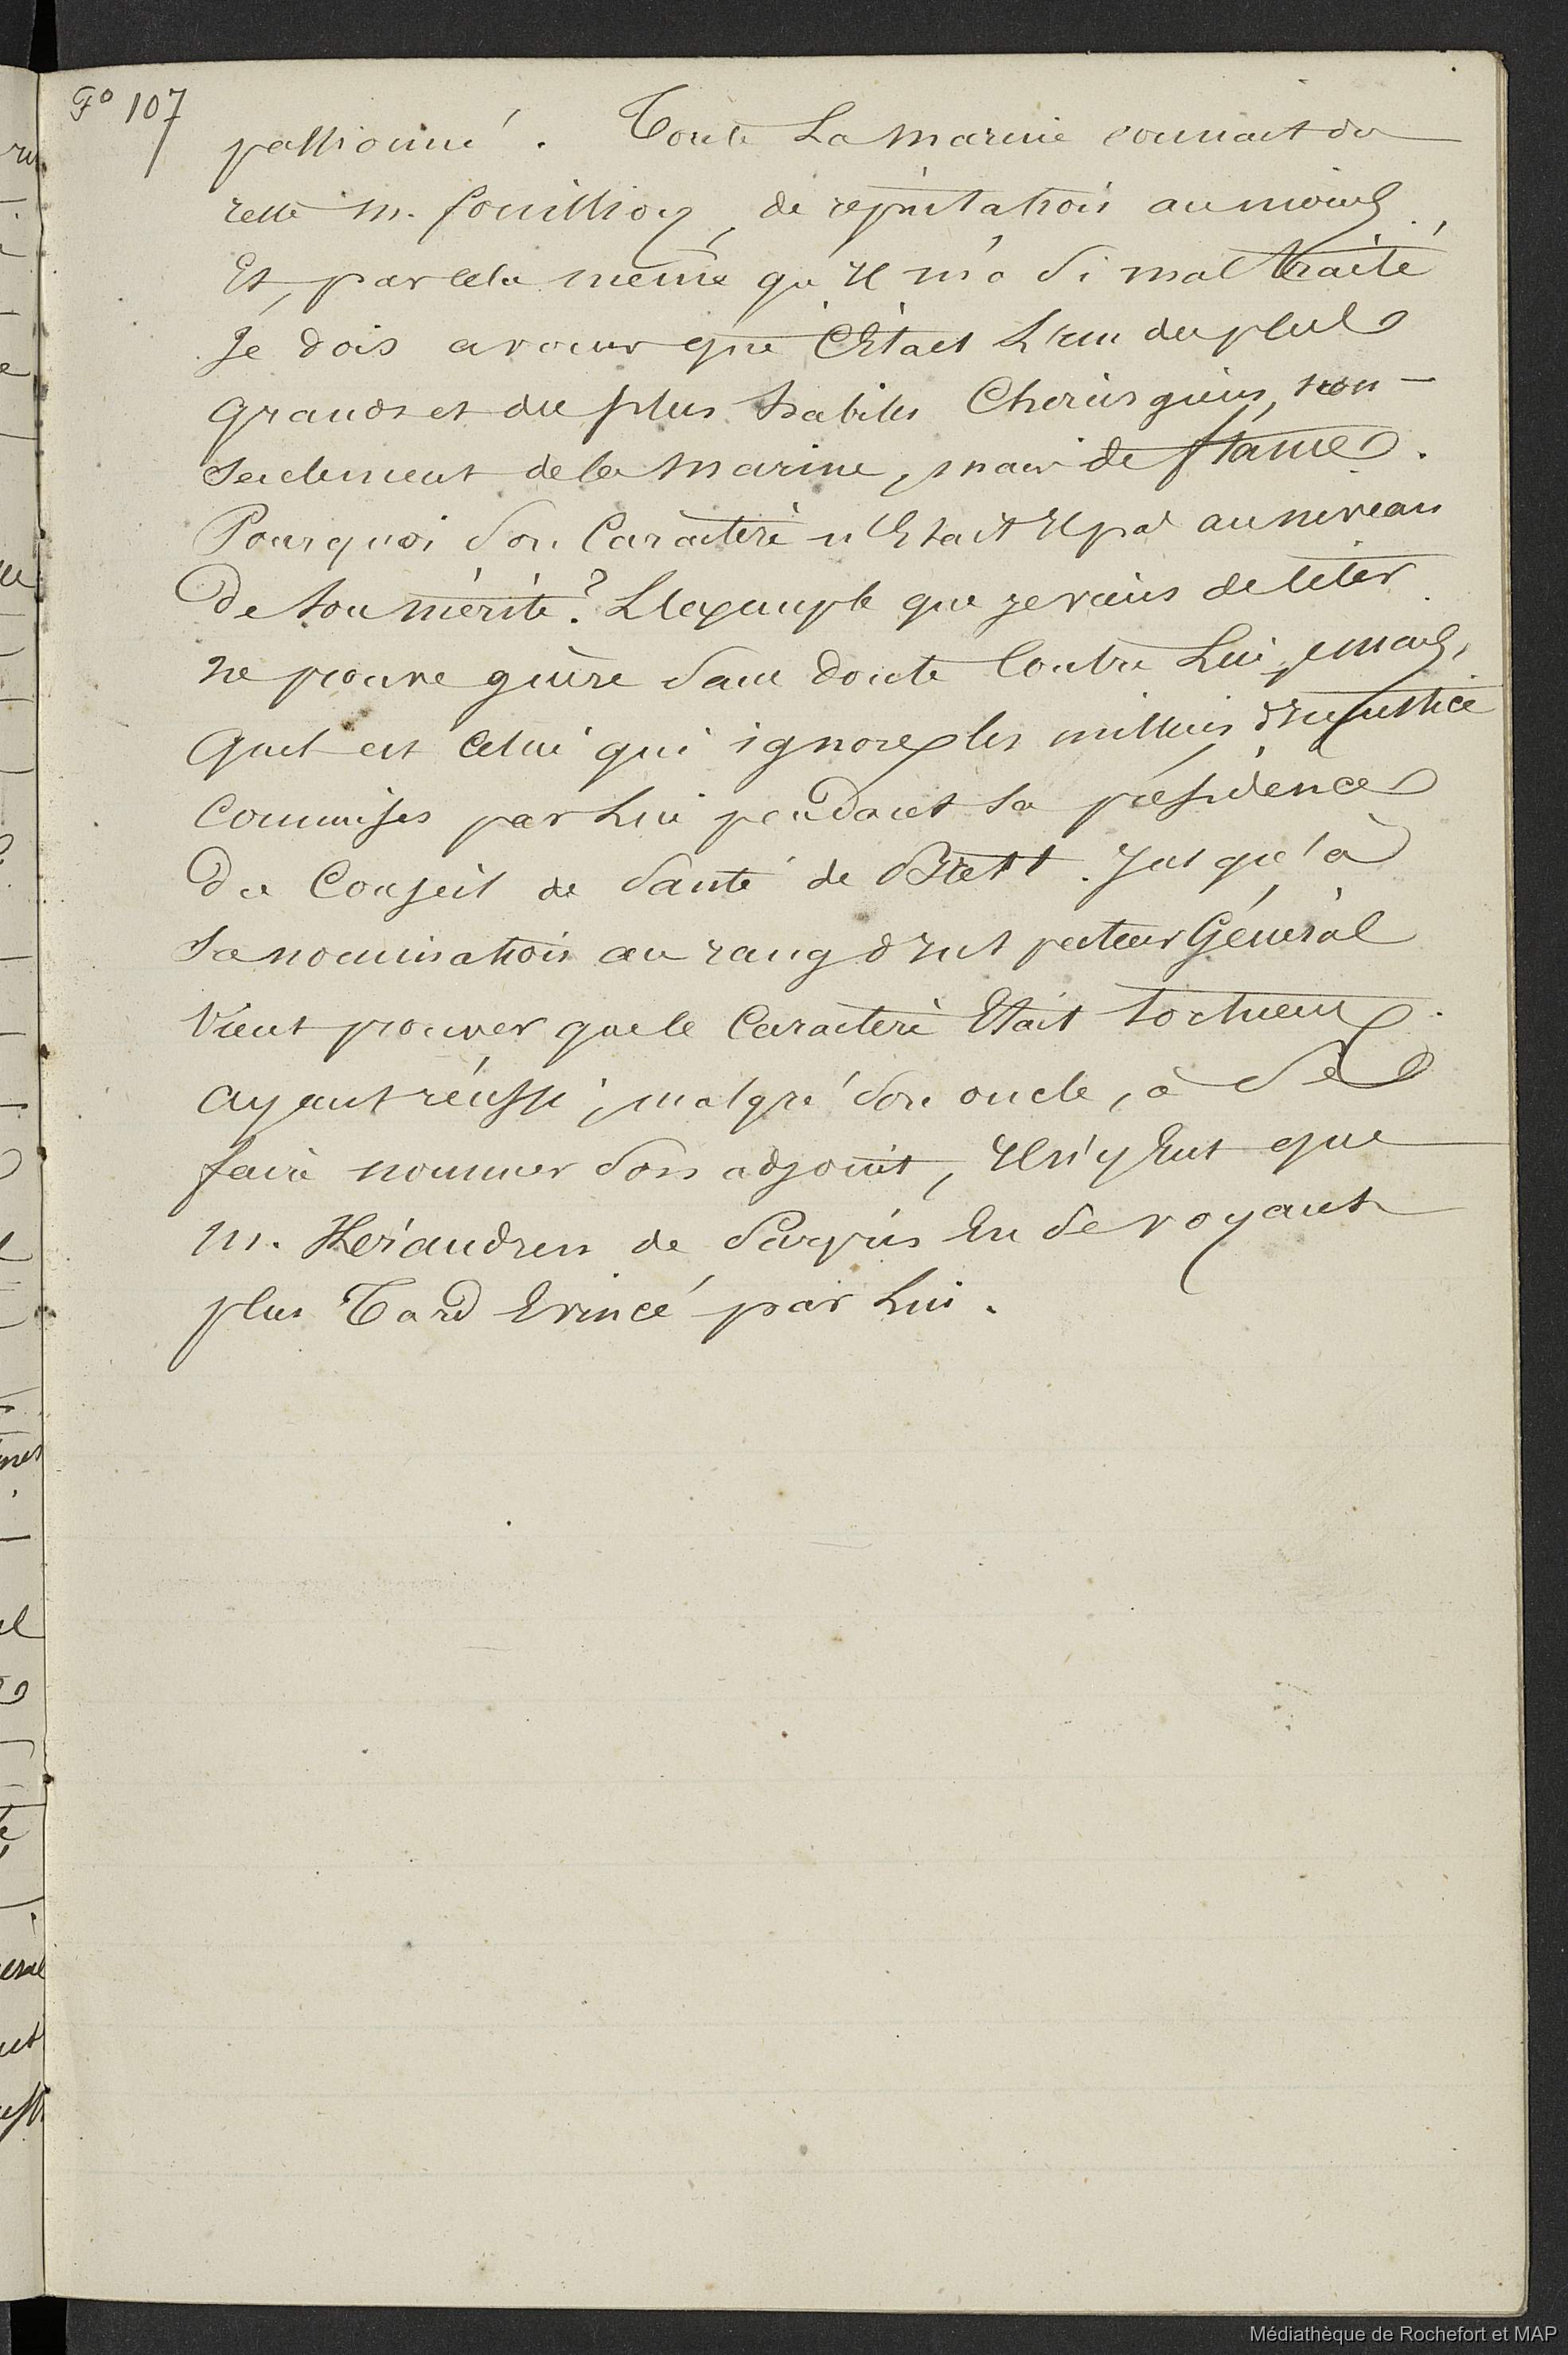 F° 107
passionné. Toute La marine connait du
reste m. fouillioy, de réputation au moins.
Et, par cela même qu'Il m'a Si mal traité
Je dois avouer que C'Etait L'un des plus
grands et des plus habiles Chirurgiens, non-
Seulement de la marine, mais de france.
Pourquoi Son Caractère n'Etait Il pas au niveau
De Son mérite? L'exemple que je viens de Citer
ne prouve guère Sans Doute Contre Lui, mais,
quel est Celui qui ignore les milliers d'Injustice
Commises par Lui pendant Sa présidence
Du Conseil de Santé de Brest. Jusqu'à
Sa nomination au rang d'Inspecteur Général
Vient prouver que le Caractère Etait tortueux.
ayant réussi, malgré Son oncle, à Se
faire nommer Son adjoint, Il n'y Eut que
m. Keraudren de Surpris En Se voyant
plus Tard Evincé par Lui.
Médiathèque de Rochefort et MAP